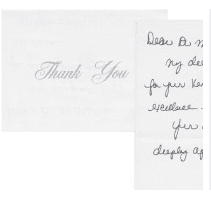 Thank You
Dear Dr. M
my dee
for your Ken
excellence.
your
deeply ap